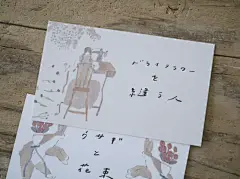 ドライフラワー
を
縫う人
ウサギ
と
花束